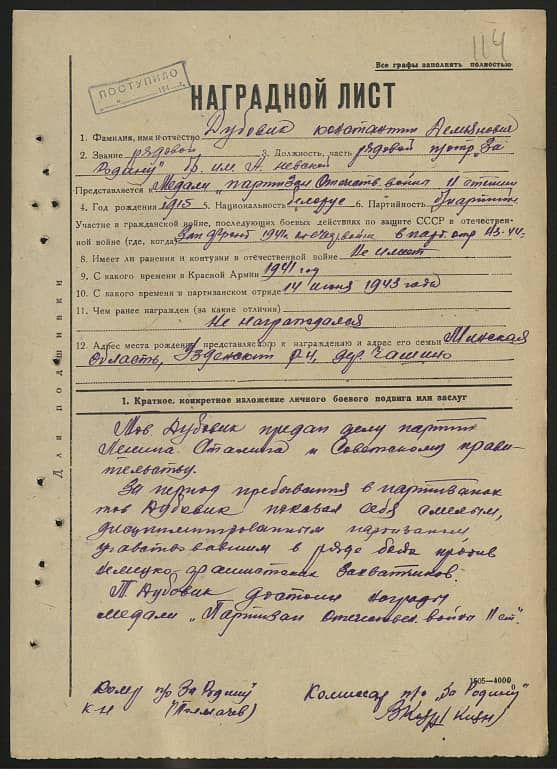 114
Все графы заполнять полностью
ПОСТУПИЛО
НАГРАДНОЙ ЛИСТ
1. Фамилия, имя и отчество Дубовик константин Демьянович
2. Звание рядовой 3. Должность, часть рядовой п/отр. „За
Родину" бр. им. А. невского
Представляется к Медали „партизан Отечеств. войны II степени
4. Год рождения 1915 5. Национальность белорус 6. Партийность б/партийн
Участие в гражданской войне, последующих боевых действиях по защите СССР и отечествен-
ной войне (где, когда) Зап фронт 1941 в парт. отр 43-44г.
8. Имеет ли ранения и контузии в отечественной войне Не имеет
9. С какого времени в Красной Армии 1941 год
10. С какого времени в партизанском отряде 14 июня 1943 года
11. Чем ранее награжден (за какие отличия)
Не награждался
12. Адрес места рождения представляемого к награждению и адрес его семьи Минская
Область, Узденский р-н, дер. Чашино
Для подшивки
1. Краткое, конкретное изложение личного боевого подвига или заслуг
Тов. Дубовик предан делу партии
Ленина Сталина и Советскому прави-
тельству.
За период пребывания в партизанах
тов Дубовик показал себя смелым,
дисциплинированным партизаном
участвовавшим в ряде боев против
немецко-фашистских захватчиков.
Т Дубовик достоин награды
медали „Партизан отечествен. войны II ст".
1505—4000
Комиссар п/о „За Родину"
п/о За Родину"
К-н (Толмачев)